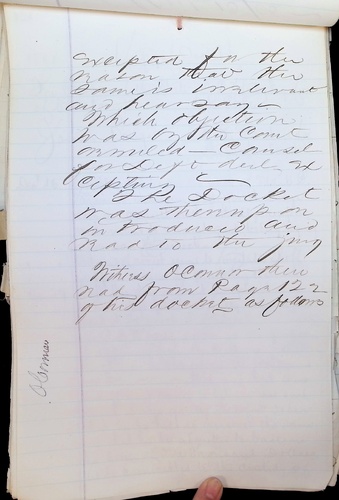 excepted for the
reason that the
same is irrelevant
and hearsay
Which objection
was by the Court
overruled – Counsel
for Deft duly ex
cepting
The Docket
was thereupon
introduced and
read to the jury
Witness O'Connor then
read from Page 122
of his docket, as follows
O'Connor